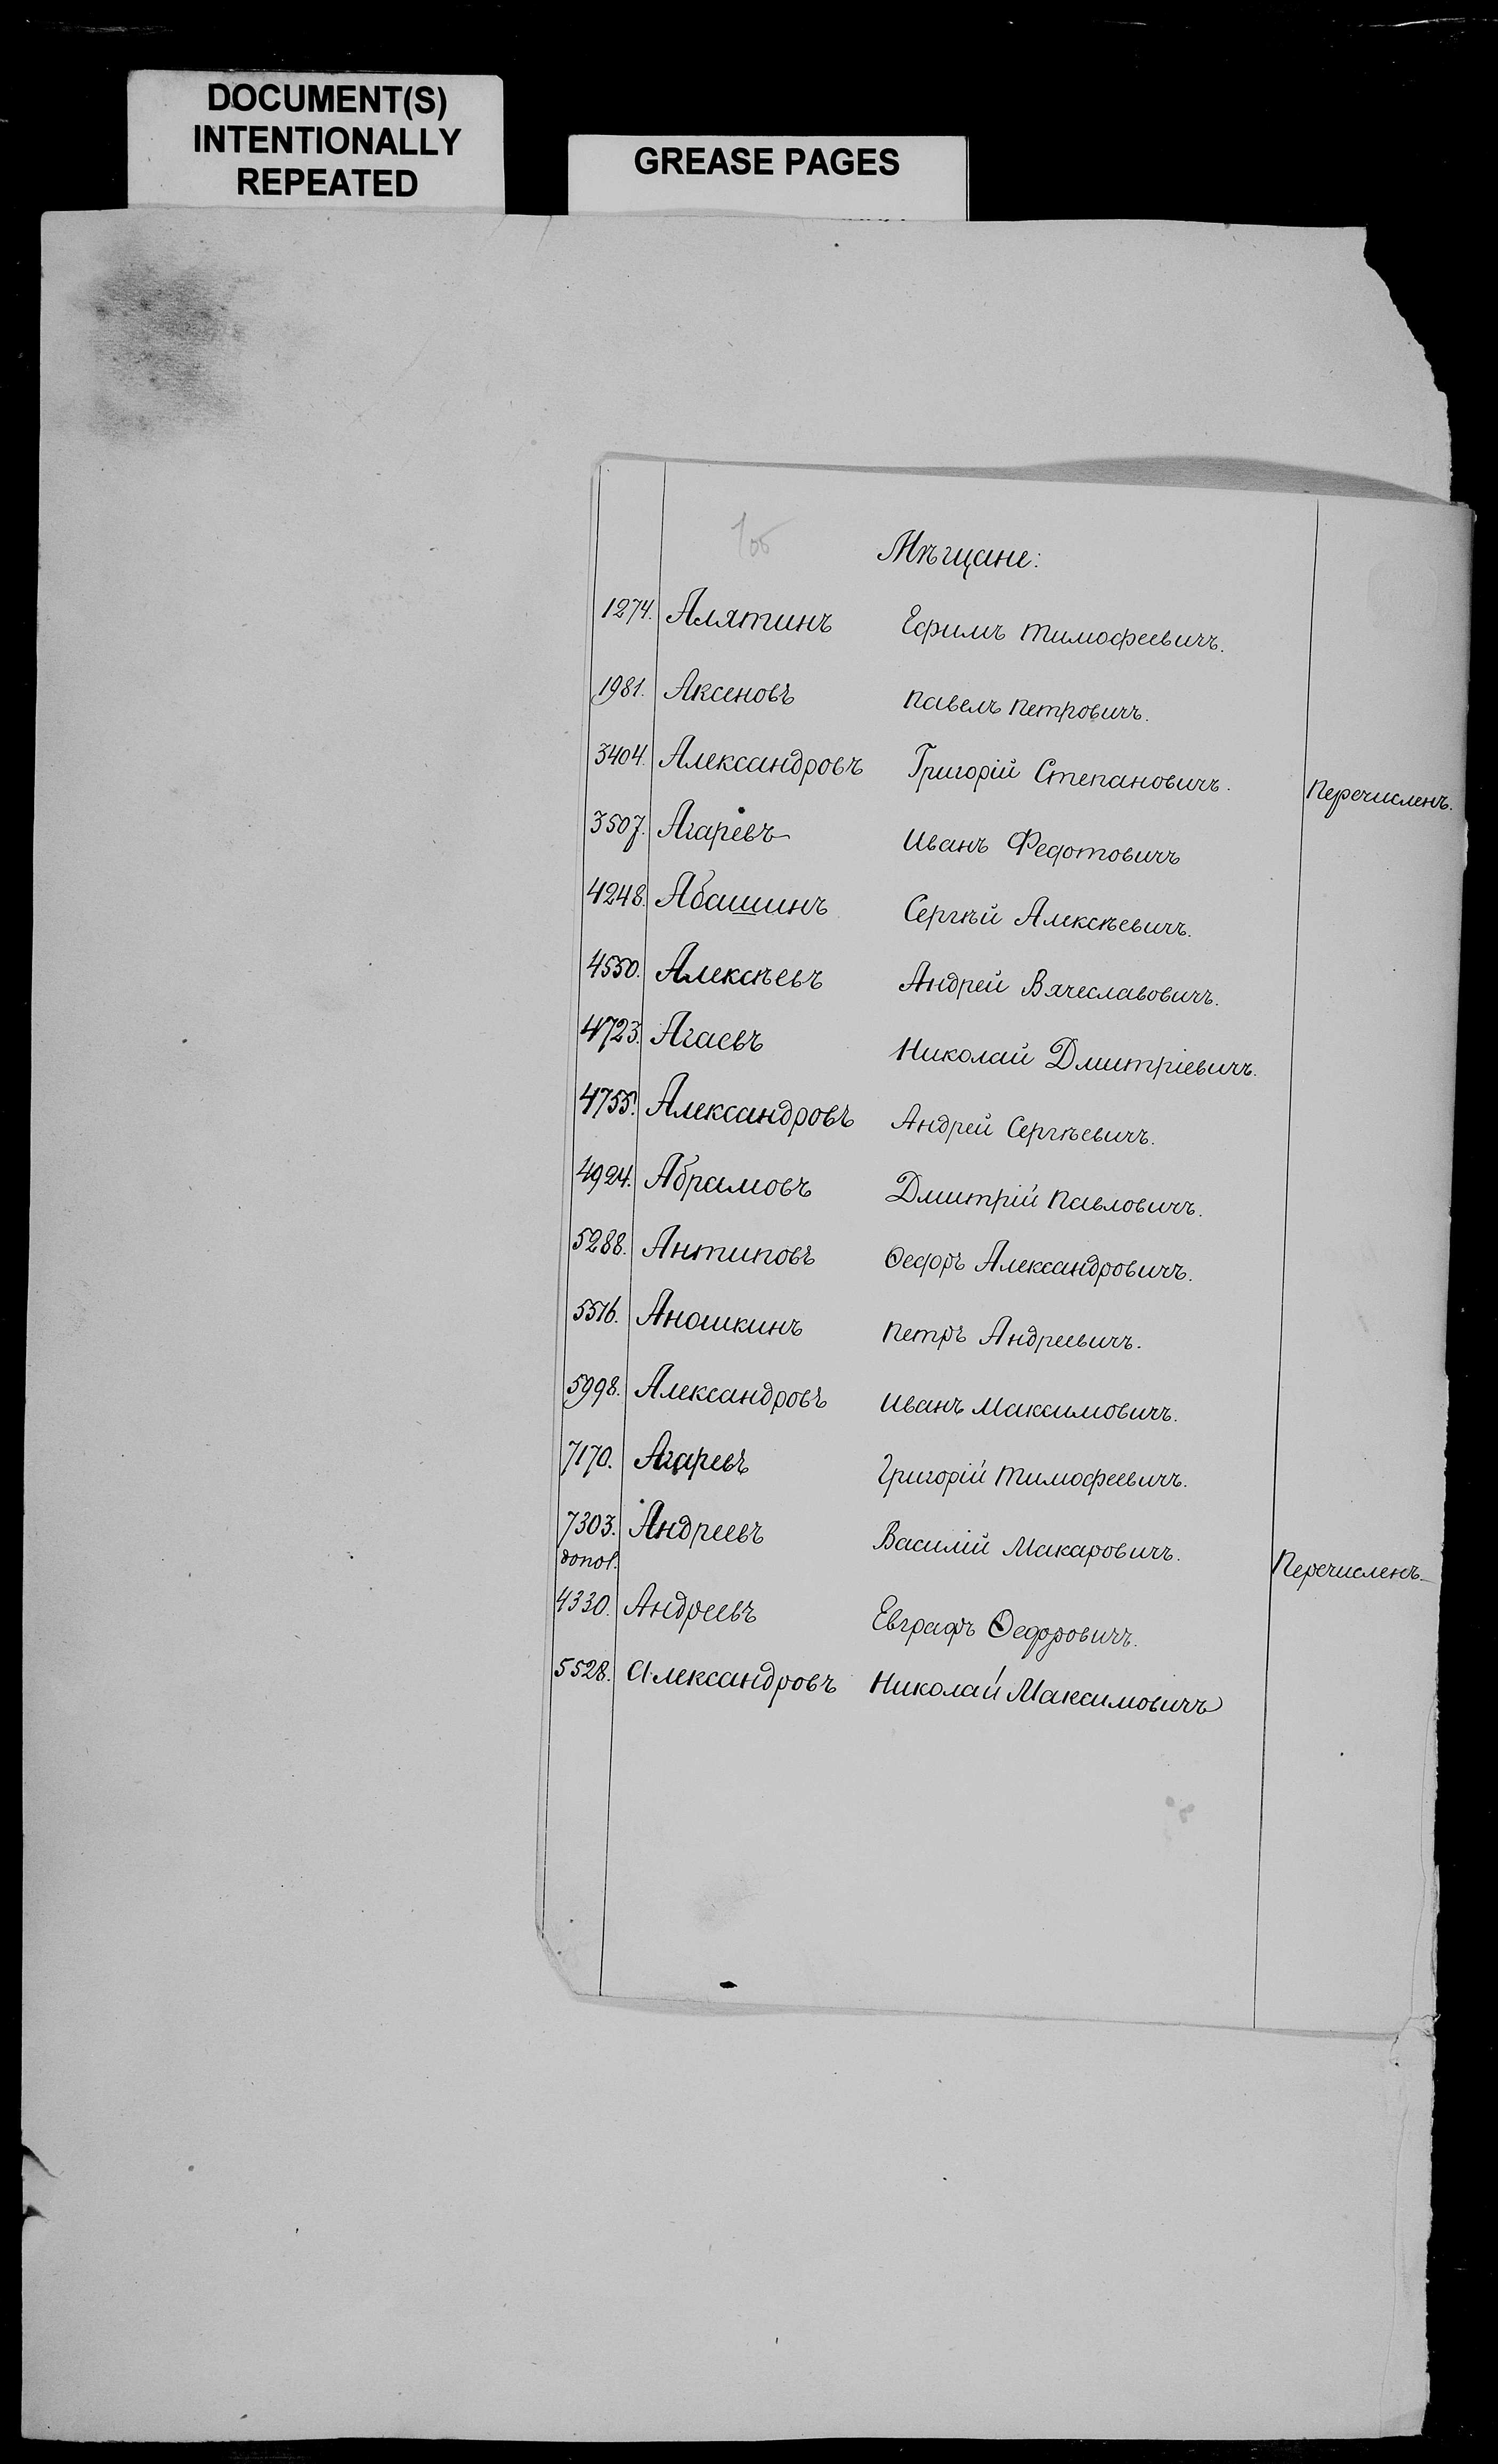 DOCUMENT(S)
INTENTIONALLY
REPEATED
GREASE PAGES
Мѣщане:
1274. Алятинъ Ефимъ Тимофеевичъ.
1981. Аксеновъ Павелъ Петровичъ.
3404. Александровъ Григорій Степановичъ. Перечисленъ.
3507. Агаревъ Иванъ Федотовичъ
4248. Абашинъ Сергѣй Алексѣевичъ.
4550. Алексѣевъ Андрей Вячеславовичъ.
4723. Агаевъ Николай Дмитріевичъ.
4755. Александровъ Андрей Сергѣевичъ.
4924. Абрамовъ Дмитрій Павловичъ.
5288. Антиповъ Ѳедоръ Александровичъ.
5516. Аношкинъ Петръ Андреевичъ.
5998. Александровъ Иванъ Максимовичъ.
7170. Агаревъ Григорій Тимофеевичъ.
7303. Андреевъ Василій Макаровичъ. Перечисленъ
допол.
4330. Андреевъ Евграфъ Ѳедоровичъ.
5528. Александровъ Николай Максимовичъ